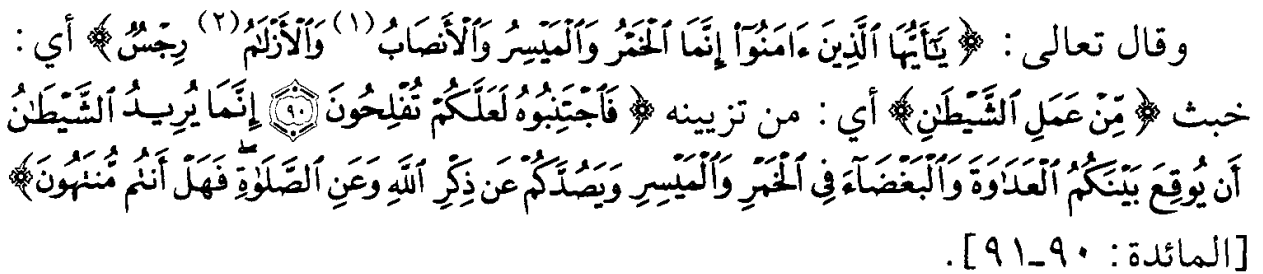 وقال تعالى : ﴿ يَٰٓأَيُّهَا ٱلَّذِينَ ءَامَنُوٓا۟ إِنَّمَا ٱلْخَمْرُ وَٱلْمَيْسِرُ وَٱلْأَنصَابُ (١) وَٱلْأَزْلَٰمُ (٢) رِجْسٌ ﴾ أي :
خبث ﴿ مِّنْ عَمَلِ ٱلشَّيْطَٰنِ ﴾ أي : من تزيينه ﴿ فَٱجْتَنِبُوهُ لَعَلَّكُمْ تُفْلِحُونَ ٩٠ إِنَّمَا يُرِيدُ ٱلشَّيْطَٰنُ
أَن يُوقِعَ بَيْنَكُمُ ٱلْعَدَٰوَةَ وَٱلْبَغْضَآءَ فِى ٱلْخَمْرِ وَٱلْمَيْسِرِ وَيَصُدَّكُمْ عَن ذِكْرِ ٱللَّهِ وَعَنِ ٱلصَّلَوٰةِۖ فَهَلْ أَنتُم مُّنتَهُونَ ﴾
[المائدة : ٩٠ـ٩١] .